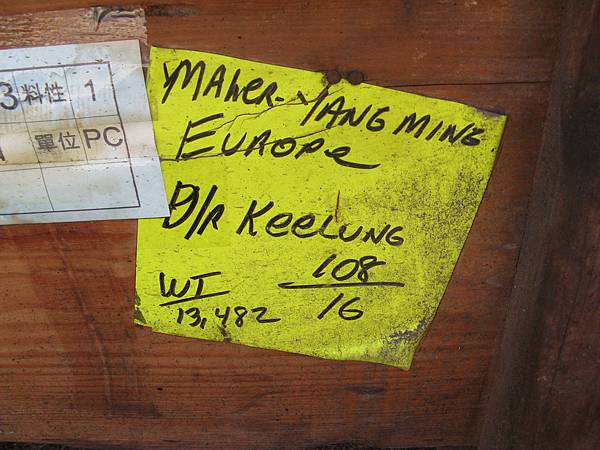 3 料性 1
單位 PC
MAher- YANG MING
EUROPe
D/R KeeLUNG
108
16
WT
13,482